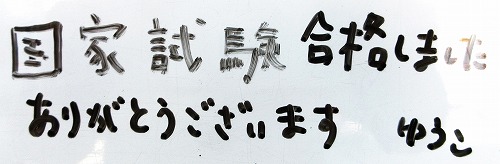 国家試験合格しました
ありがとうございます ゆうこ